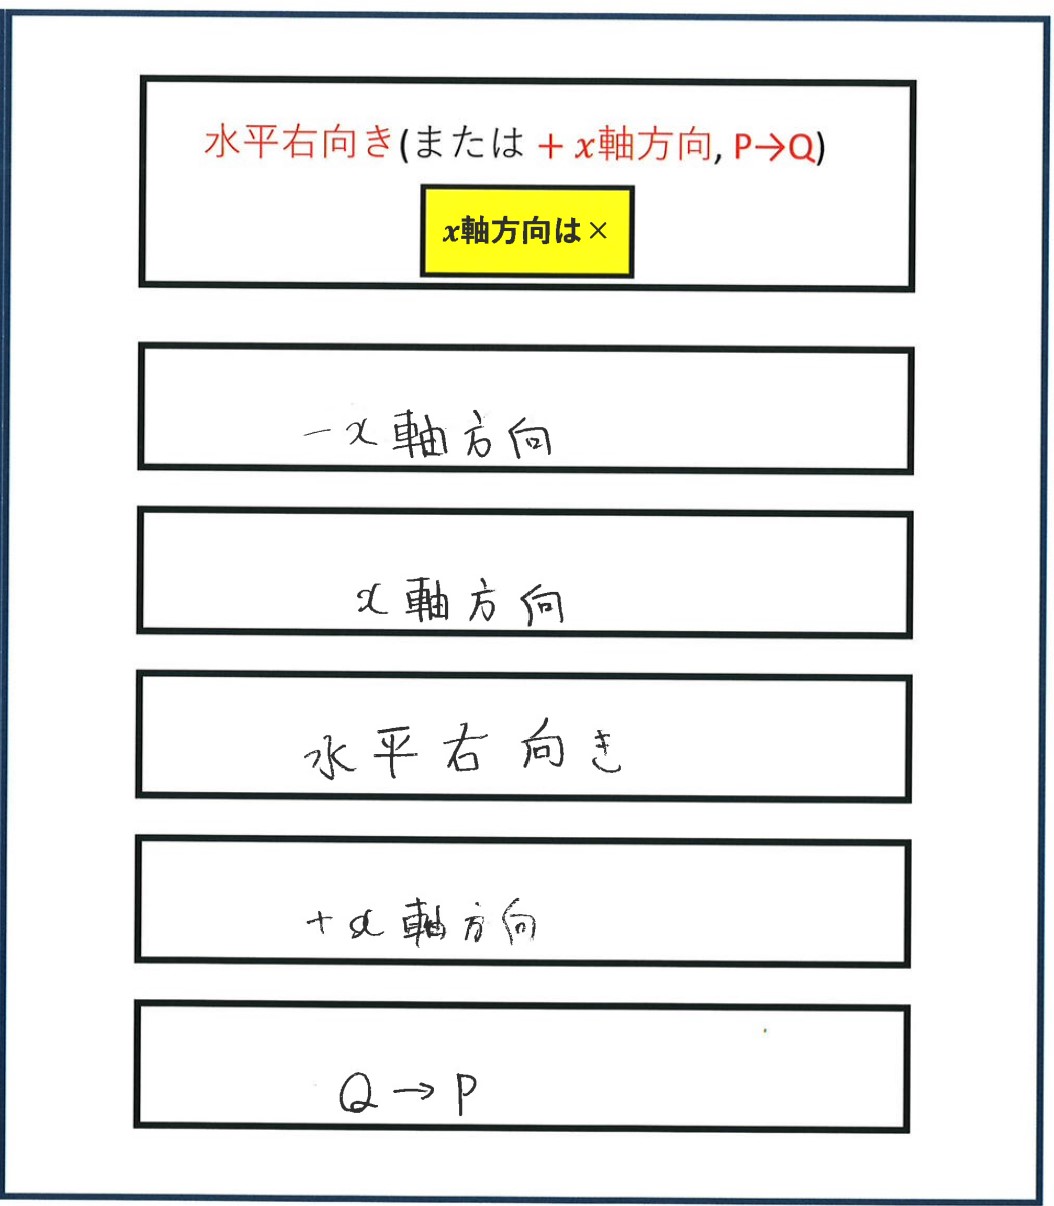 水平右向き(または + x軸方向, P→Q)
x軸方向は×
-x軸方向
x軸方向
水平右向き
+x軸方向
Q→P